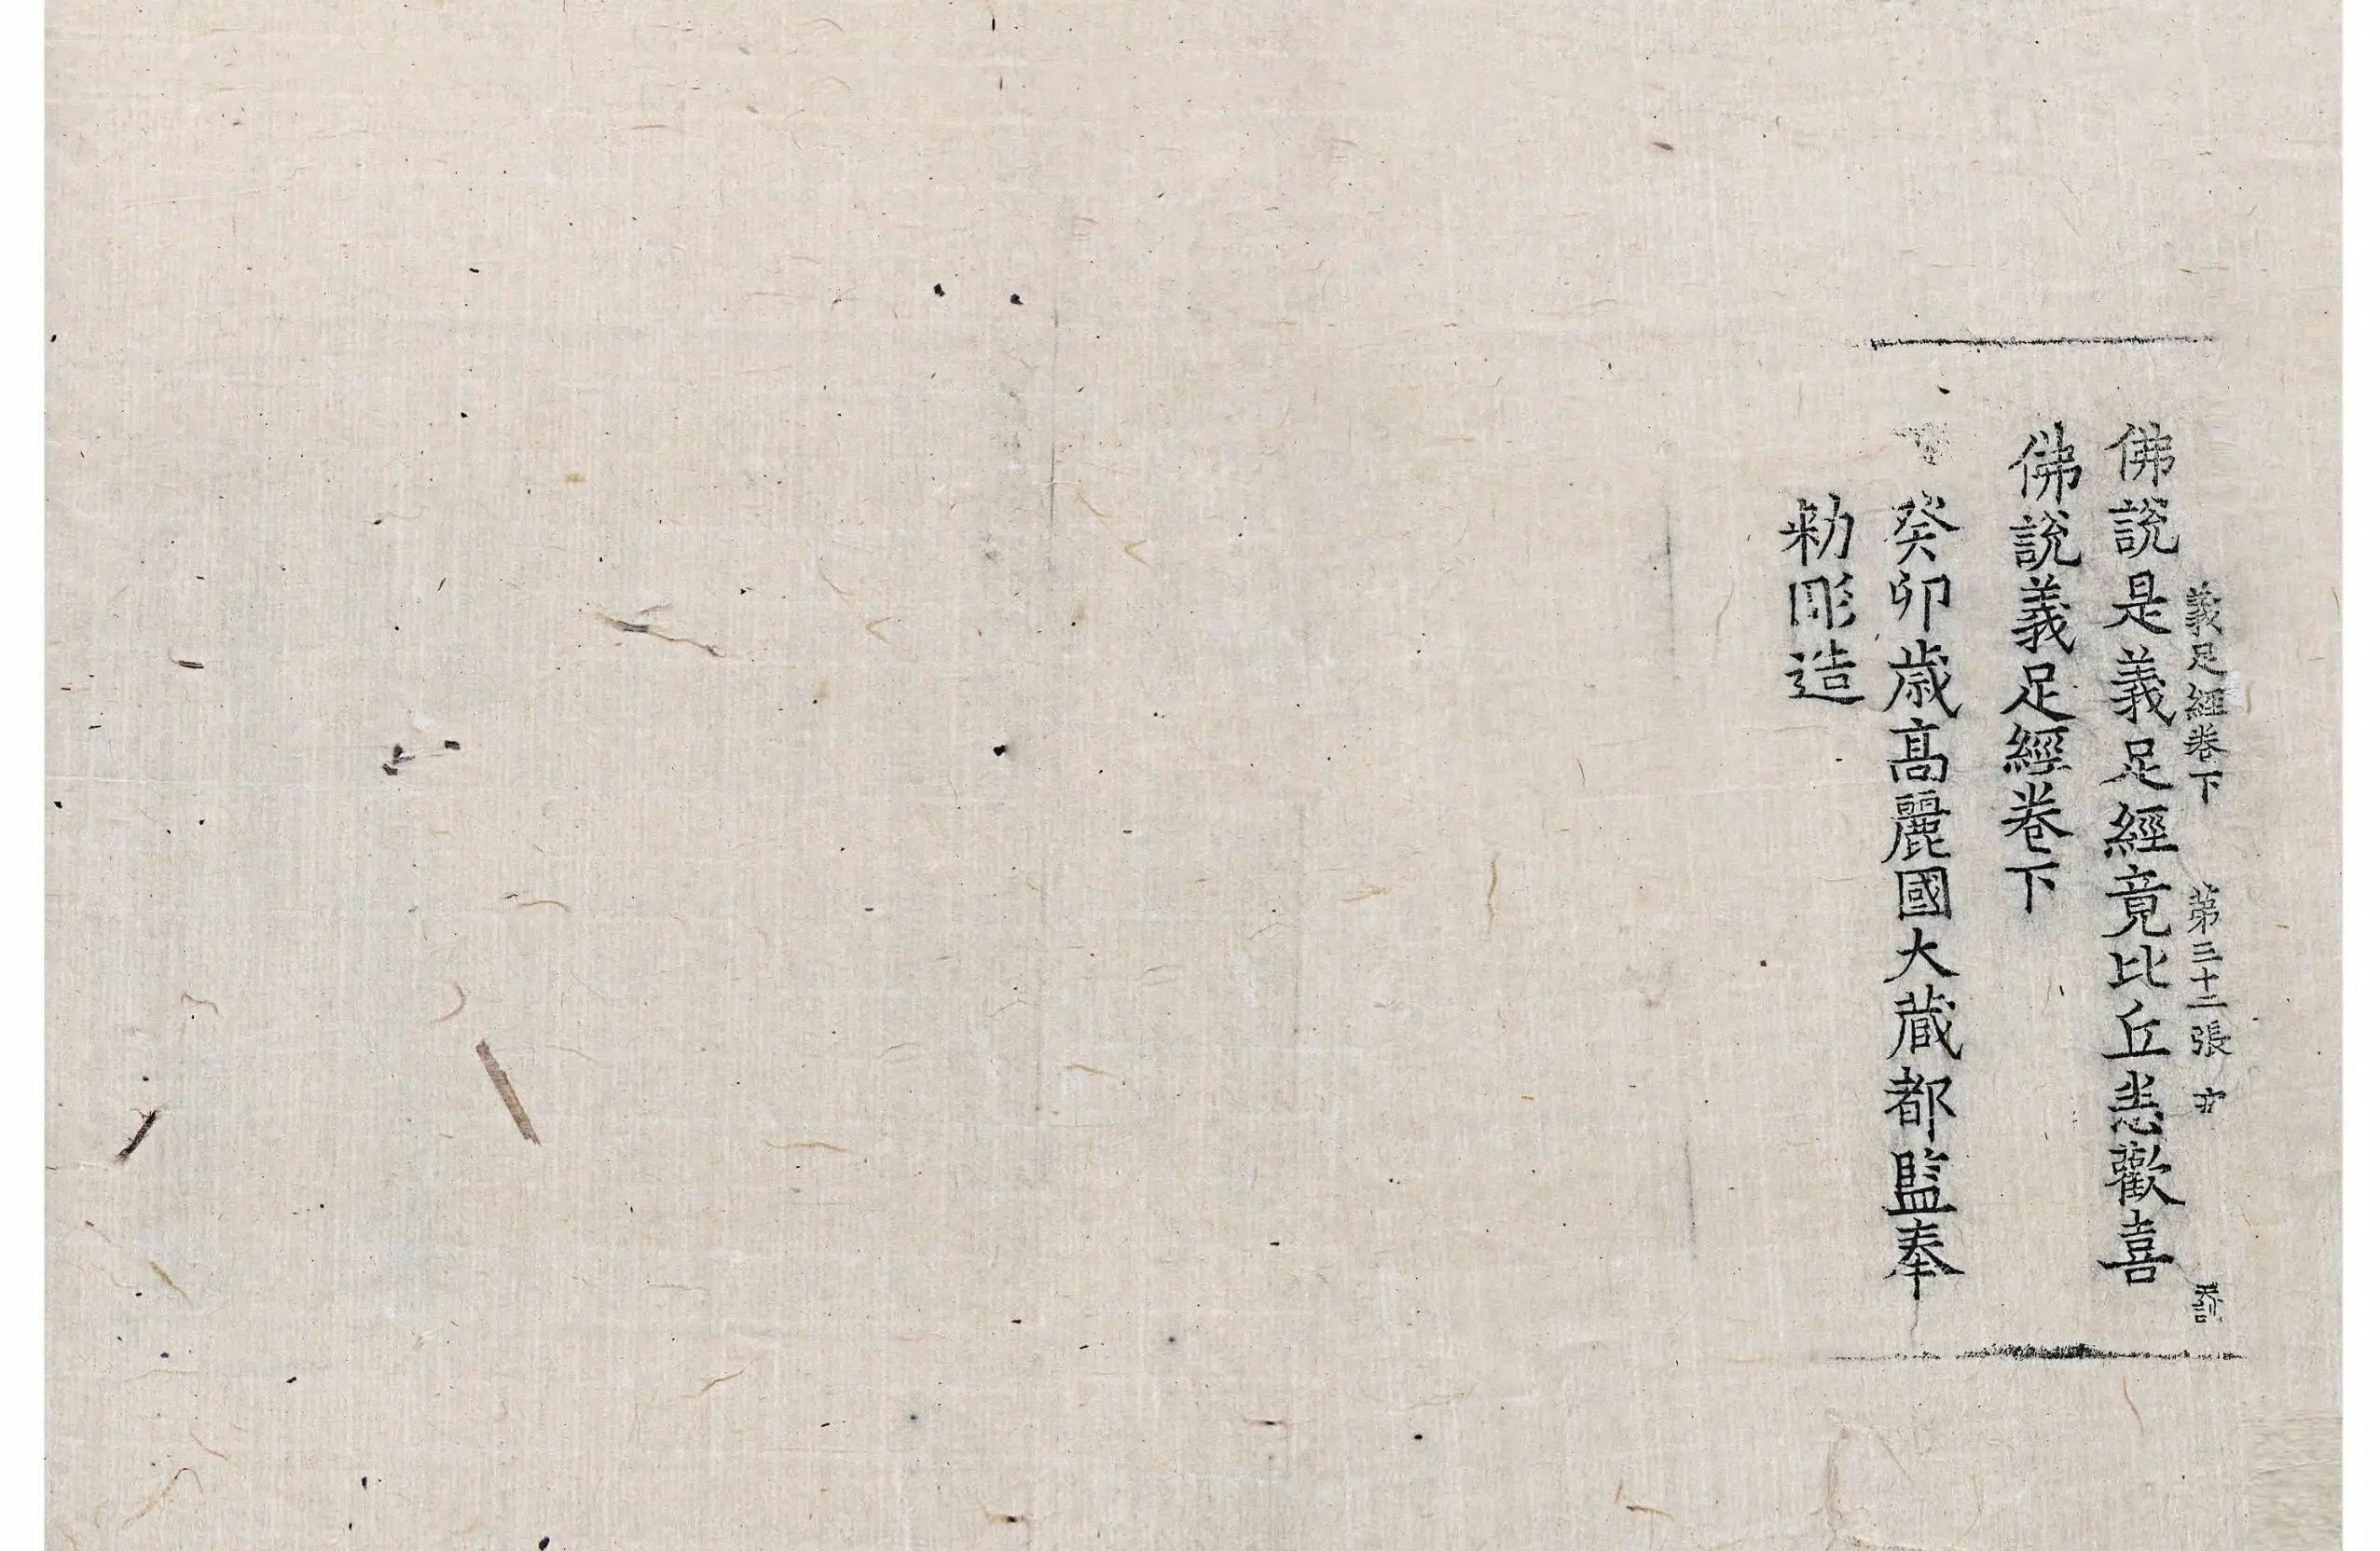 義足經卷下 第三十二張
佛說是義足經竟比丘悉歡喜
佛說義足經卷下
癸卯歲高麗國大藏都監奉
勅彫造